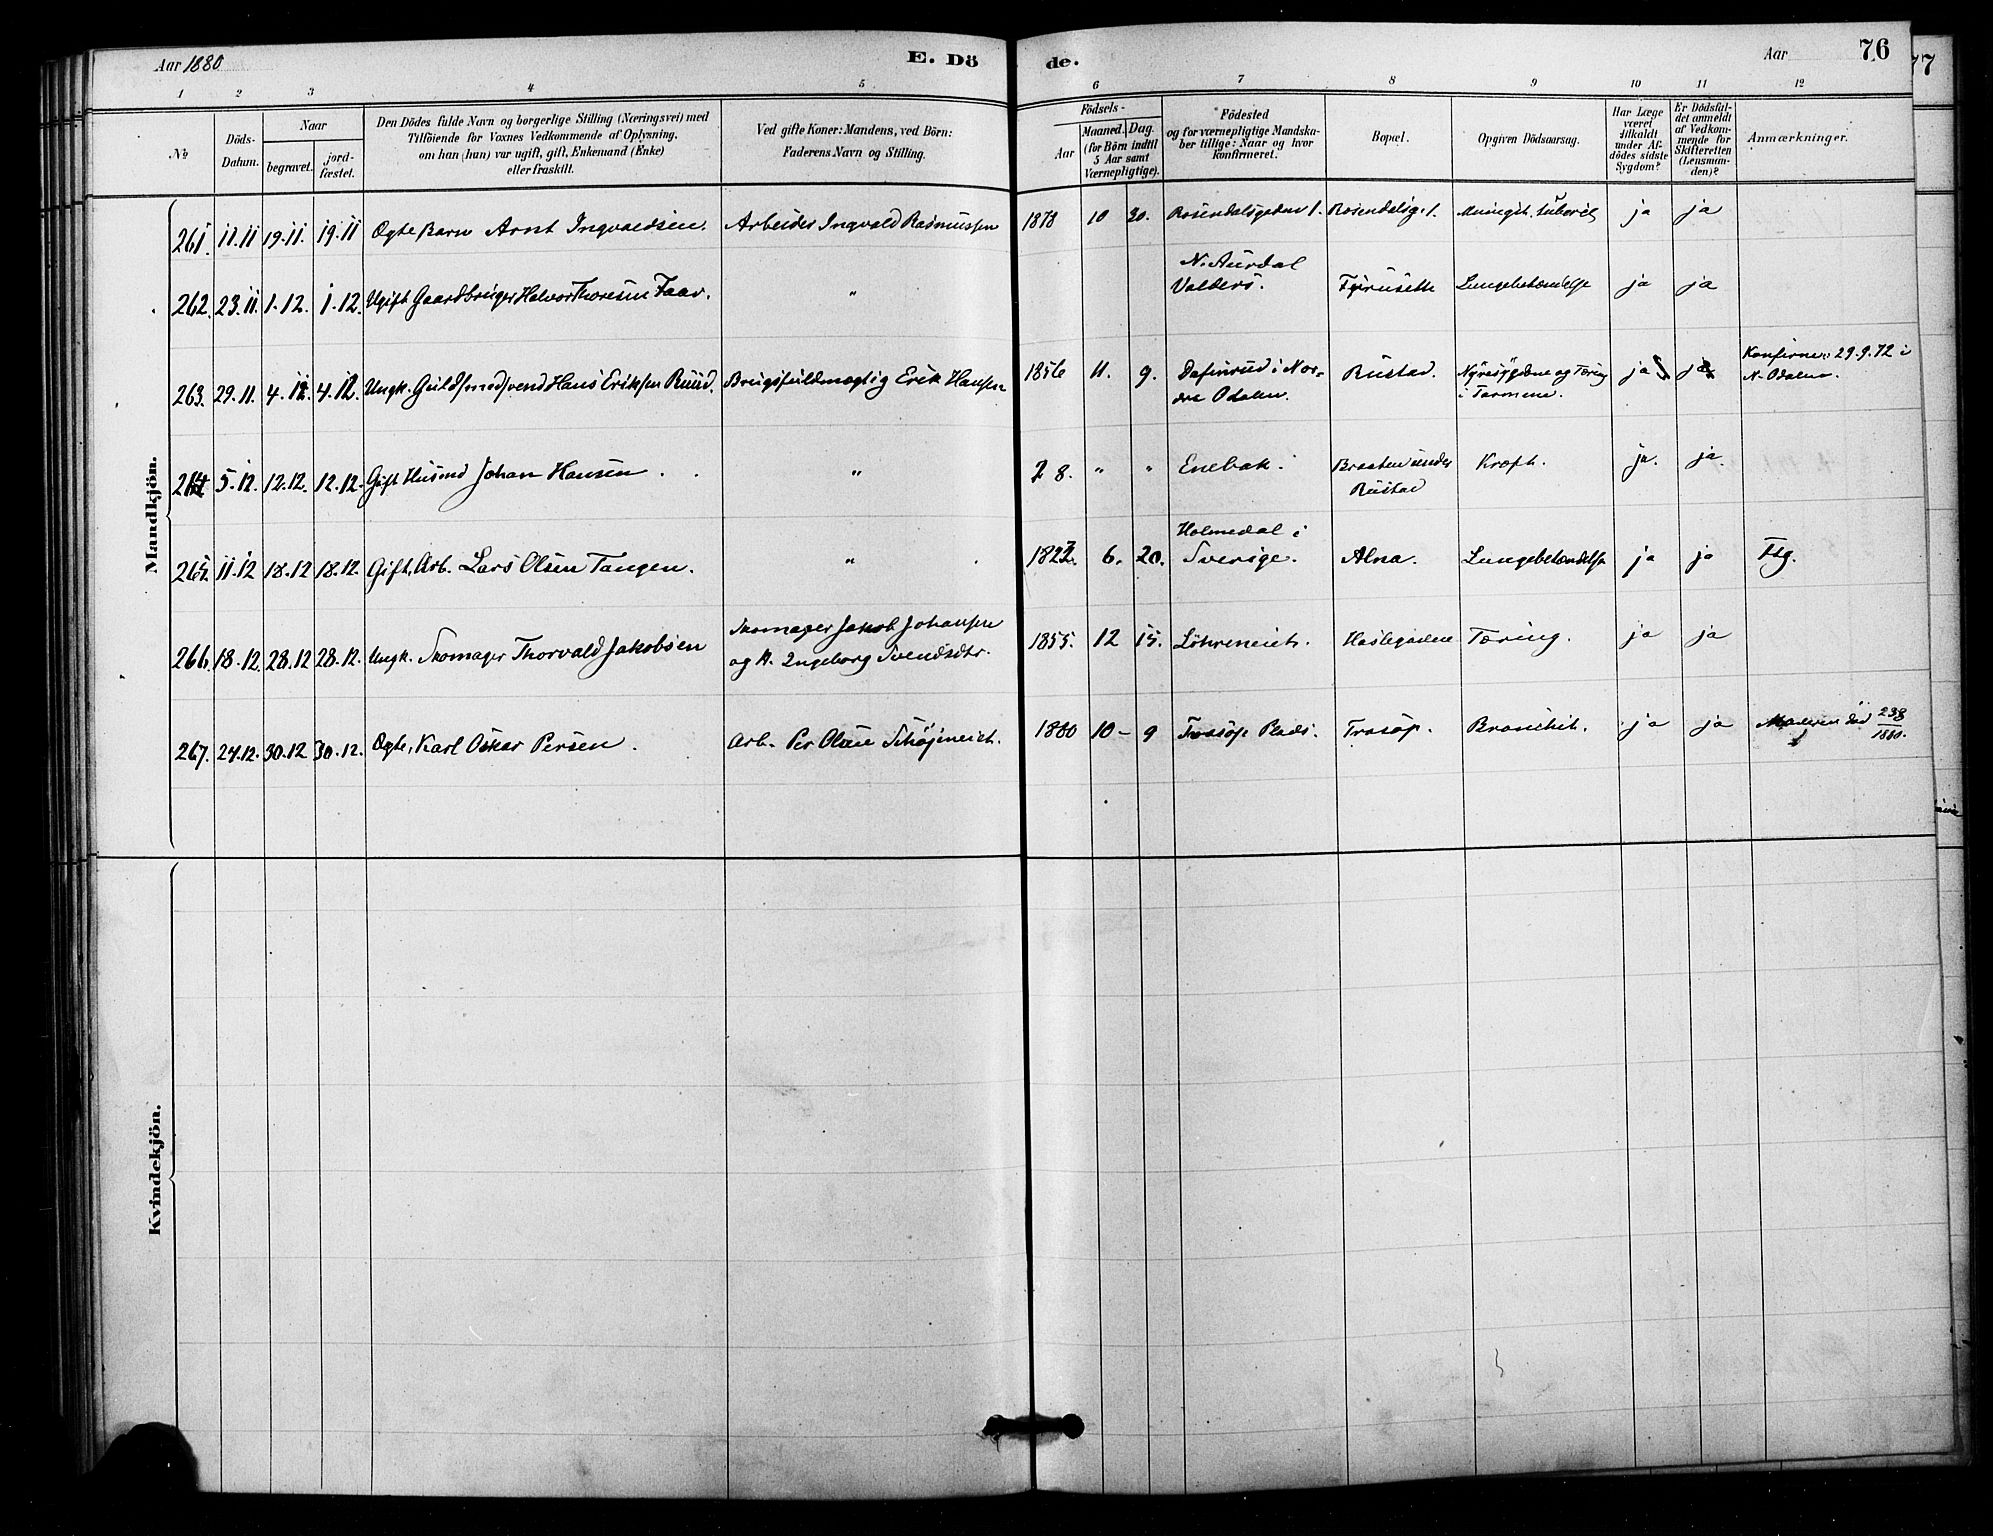 Aar 1880 E. Dö de. Aar 76
77
1 2 3 4 5 6 7 8 9 10 11 12
No
Döds-Datum.
Naar
begravet.
jord-fæstet.
Den Dödes fulde Navn og borgerlige Stilling (Næringsvei) med
Tilföiende for Voxnes Vedkommende af Oplysning,
om han (hun) var ugift, gift, Enkemand (Enke)
eller fraskilt.
Ved gifte Koner: Mandens, ved Börn:
Faderens Navn og Stilling.
Födsels-
Aar
Maaned. Dag.
(for Börn indtil
5 Aar samt
Værnepligtige).
Födested
og for værnepligtige Mandska-
ber tillige: Naar og hvor
konfirmeret.
Bopæl.
Opgiven Dödsaarsag.
Har Læge
været
tilkaldt
under Af-
dödes sidste
Sygdom?
Er Dödsful-
det anmeldt
af Vedkom-
mende for
Skifteretten
(Lensman-
den)?
Anmærkninger.
Mandkjön.
261. 11.11 19.11. 19.11 Ægte Barn Arnt Ingvaldsen. Arbeider Ingvald Rasmussen 1878 10 30. Rosendalsgaden 1. Rosendalsg. 1. Meningit. tubercl ja ja
N. Aurdal
262. 23.11. 1.12. 1.12. Ugift Gaardbruger Halvor Thoresen Faav. " Valders. Furuseth Lungebetændelse ja ja
Konfirm: 29.9.72 i
263. 29.11. 4.12. 4.12. Ungk. Guldsmedsvend Hans Eriksen Ruud. Brugsfuldmægtig Erik Hansen 1856 11. 9. i Nor- Rustad. Nyresygdom og Tæring ja ja N. Odalen.
dre Odalen. i Tarmene.
264 5.12. 12.12. 12.12. Gift Husmd Johan Hansen. " 28. " " Enebak. Braaten under Kræft. ja. ja.
Rustad
Holmedal i
265. 11.12 18.12 18.12. Gift, Arb. Lars Olsen Tangen. " 1822. 6. 20. Sverige. Alna. Lungebetændelse ja ja Ftg.
Skomager Jakob Johansen
266. 18.12. 28.12 28.12. Ungk. Skomager Thorvald Jakobsen og H. Ingeborg Svendsdtr. 1855. 12 15. Löhreneiet. Haslegadene Tæring. ja ja
267. 24.12. 30.12 30.12. Ægte, Karl Oskar Persen. Arb. Per Olsen Schöjeneiet. 1880 10 – 9 Trosöp Plads. Trosöp. Bronchit. ja ja Moderen död 23/8 1880.
Kvindekjön.